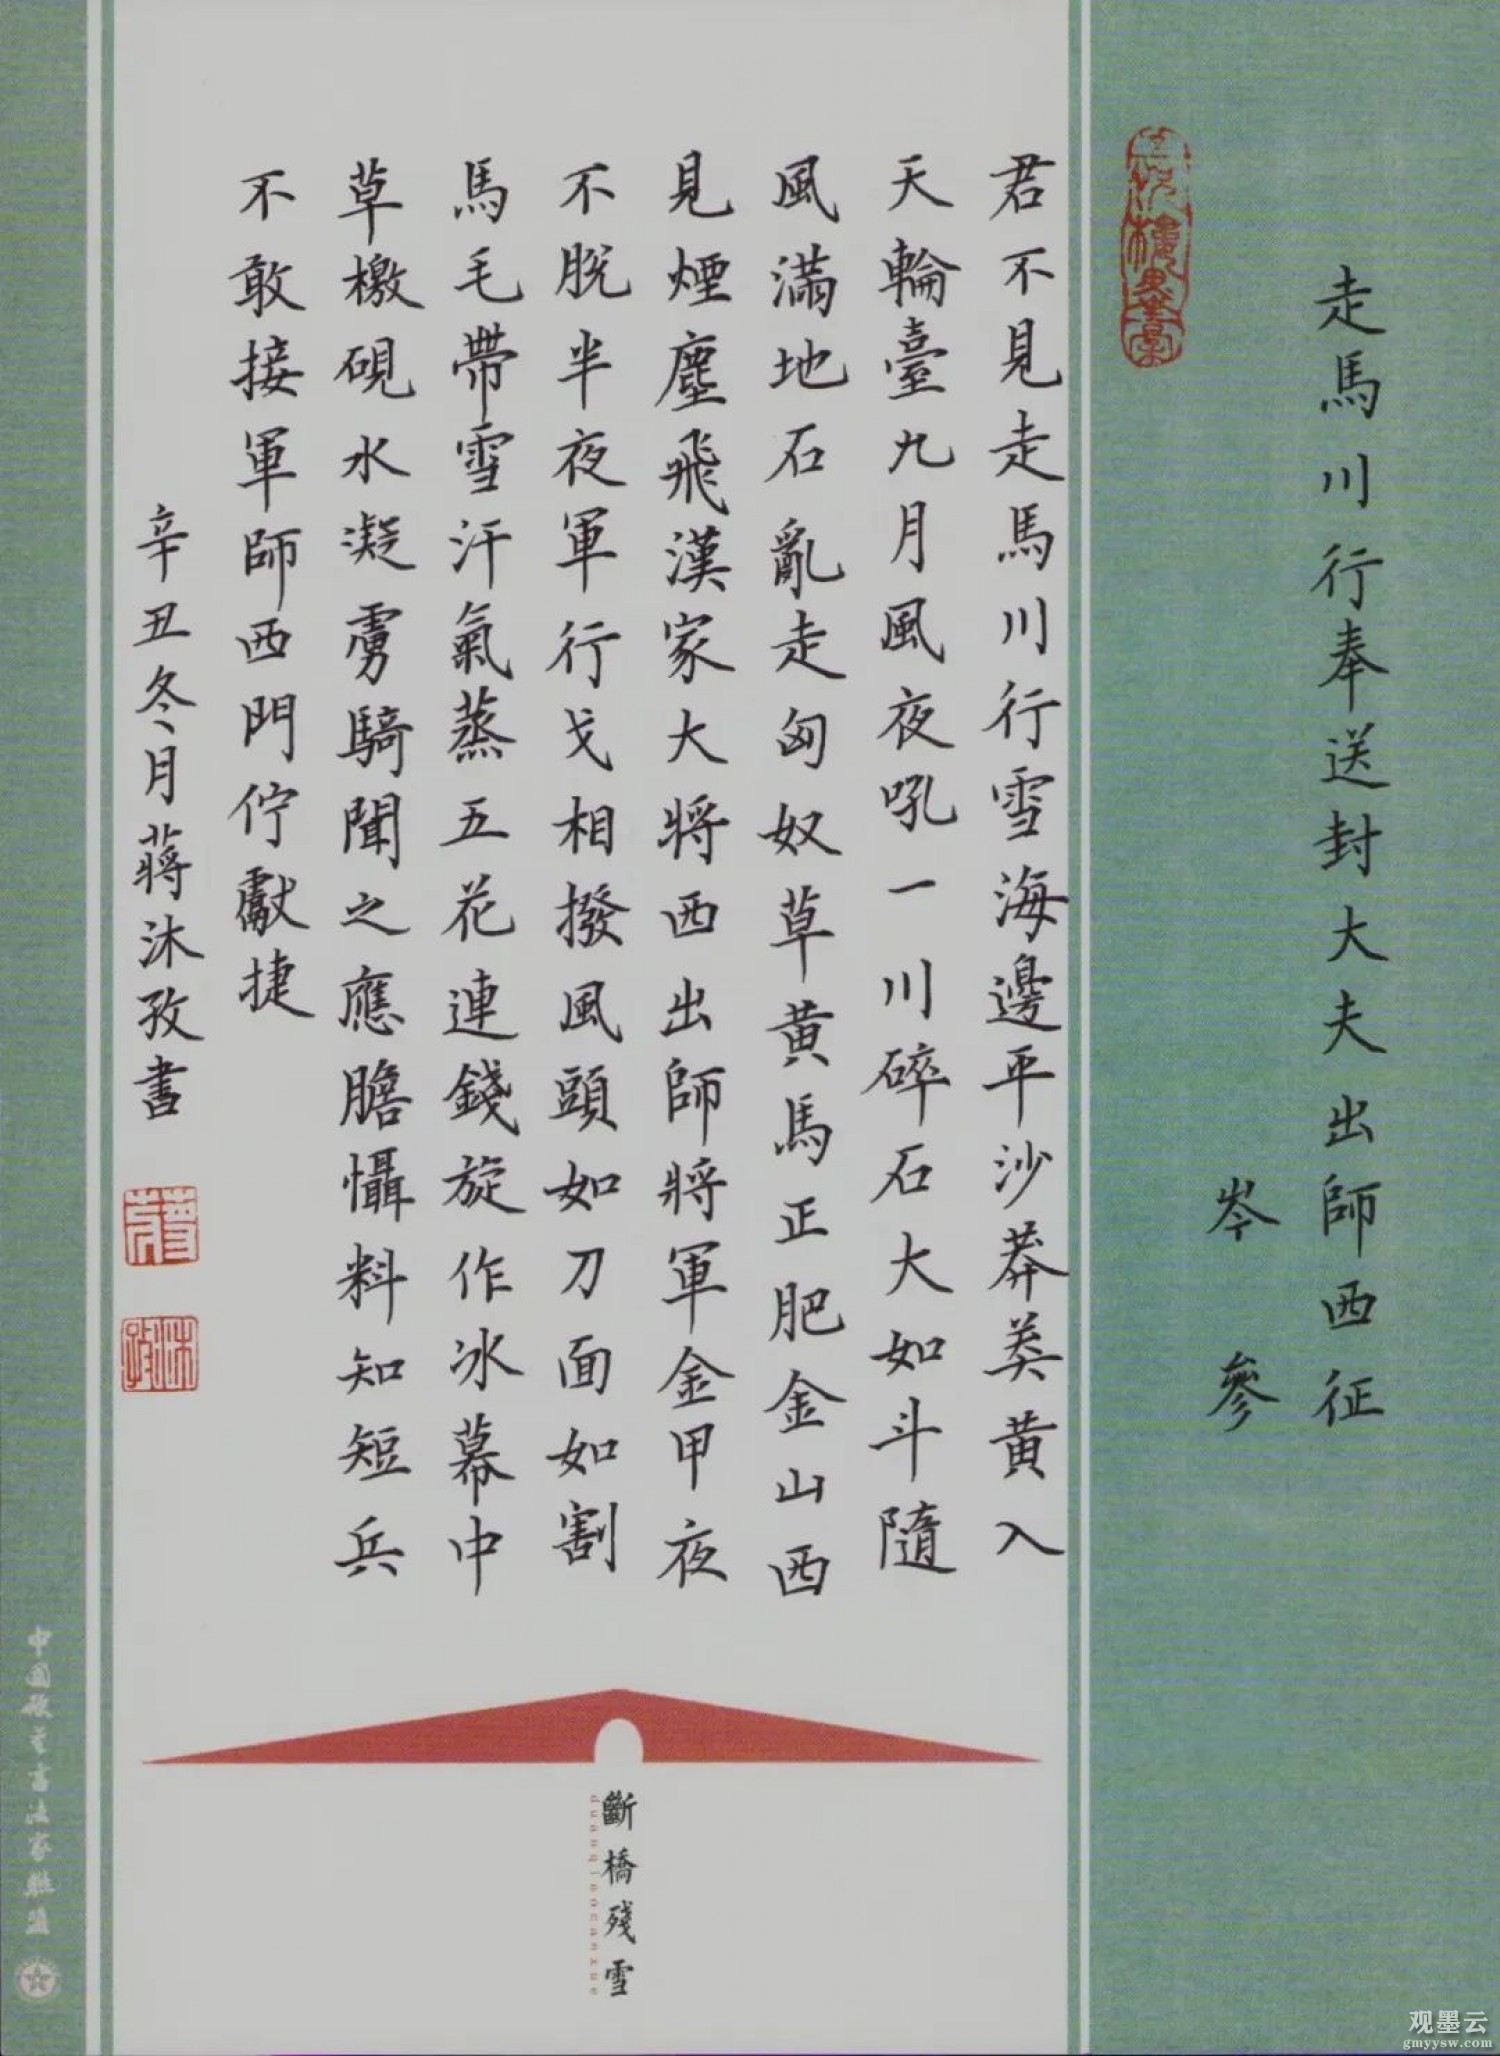 走馬川行奉送封大夫出師西征
岑參
君不見走馬川行雪海邊平沙莽莽黃入
天輪臺九月風夜吼一川碎石大如斗隨
風滿地石亂走匈奴草黃馬正肥金山西
見煙塵飛漢家大將西出師將軍金甲夜
不脫半夜軍行戈相撥風頭如刀面如割
馬毛帶雪汗氣蒸五花連錢旋作冰幕中
草檄硯水凝虜騎聞之應膽懾料知短兵
不敢接軍師西門佇獻捷
辛丑冬月蔣沐孜書
斷橋殘雪
duanqiaocanxue
中国硬筆書法家聯盟
观墨云
gmyysw.com